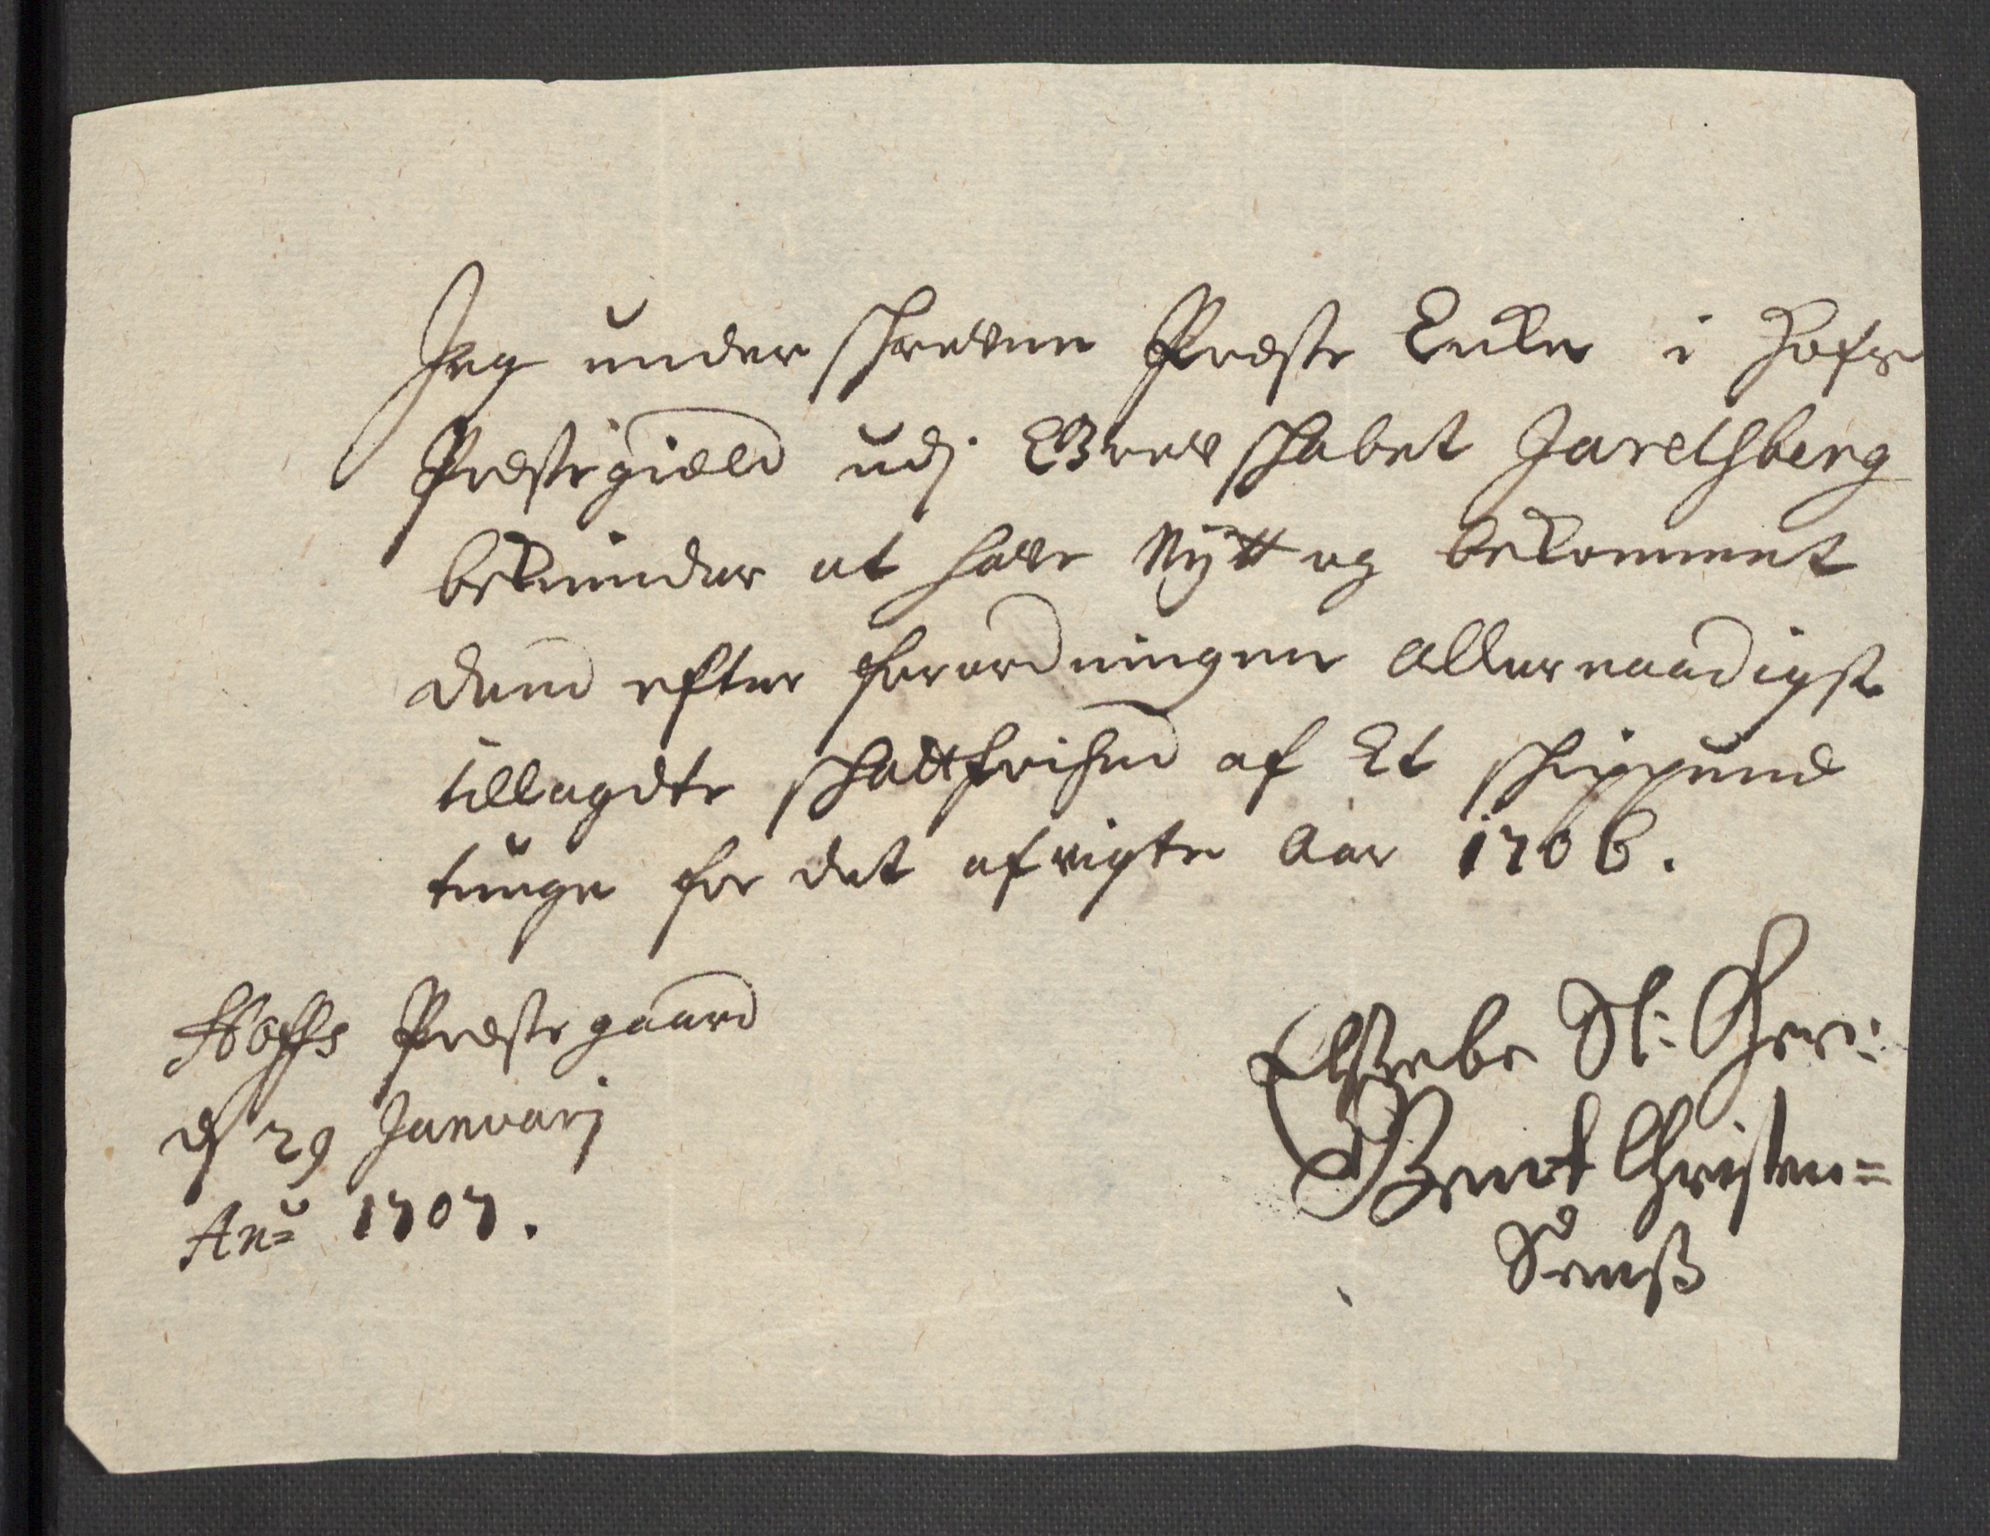 Jeg underschrefne Præste Encke i Hofs
Præstegield udj Grefschabet Jarelsberg
bekiender at hafve Nÿtt og bekommet
dend efter forordningen allernaadigst
tillagdte schattfrihed af Et schippund
tunge for det afvigte Aar 1706.
Hoffs Præstegaard
d 29 Januarj
An= 1707.
Elsebe Sl: Her:
Bent Christen=
Sens